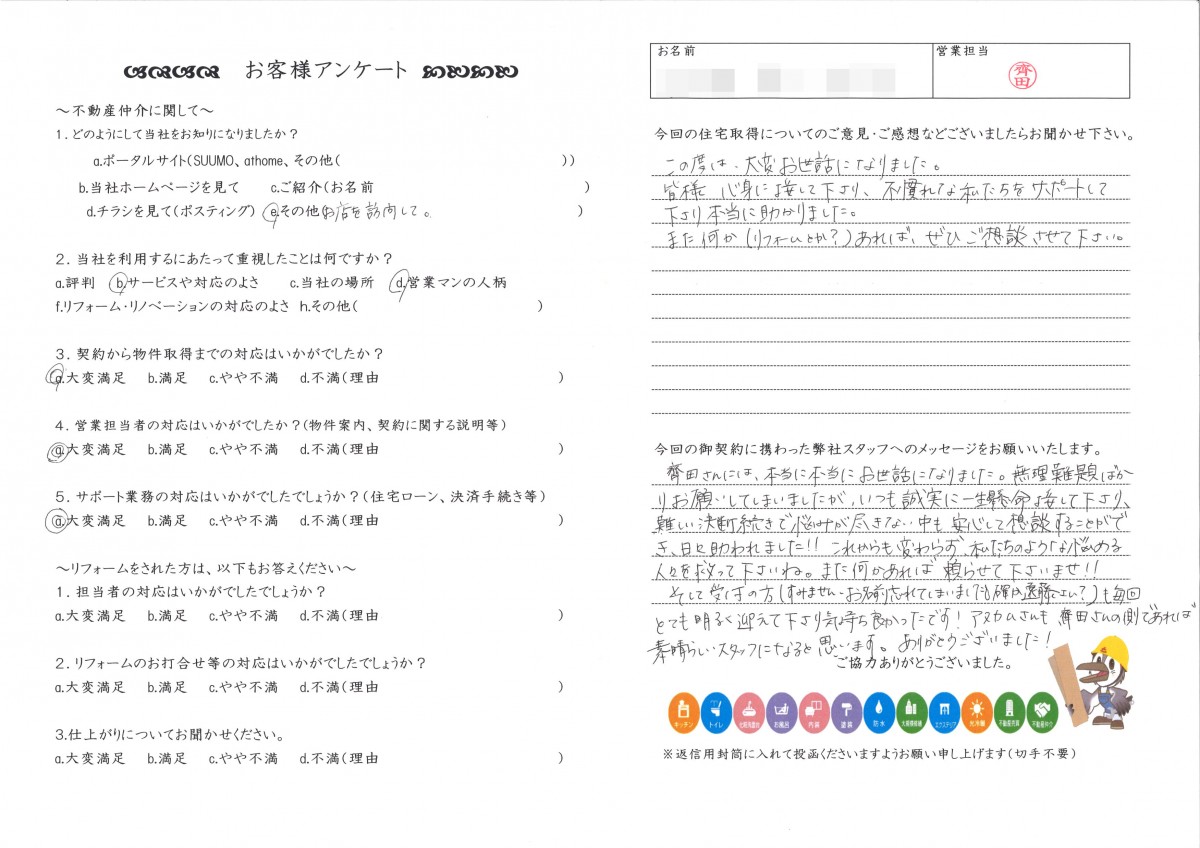 お客様アンケート
～不動産仲介に関して～
1．どのようにして当社をお知りになりましたか？
a.ポータルサイト（SUUMO、athome、その他（ ））
b.当社ホームページを見て c.ご紹介（お名前 ）
d.チラシを見て（ポスティング） e.その他（お店を訪問して。 ）
2．当社を利用するにあたって重視したことは何ですか？
a.評判 b.サービスや対応のよさ c.当社の場所 d.営業マンの人柄
f.リフォーム・リノベーションの対応のよさ h.その他（ ）
3．契約から物件取得までの対応はいかがでしたか？
a.大変満足 b.満足 c.やや不満 d.不満（理由 ）
4．営業担当者の対応はいかがでしたか？（物件案内、契約に関する説明等）
a.大変満足 b.満足 c.やや不満 d.不満（理由 ）
5．サポート業務の対応はいかがでしたでしょうか？（住宅ローン、決済手続き等）
a.大変満足 b.満足 c.やや不満 d.不満（理由 ）
～リフォームをされた方は、以下もお答えください～
1．担当者の対応はいかがでしたでしょうか？
a.大変満足 b.満足 c.やや不満 d.不満（理由 ）
2．リフォームのお打合せ等の対応はいかがでしたでしょうか？
a.大変満足 b.満足 c.やや不満 d.不満（理由 ）
3.仕上がりについてお聞かせください。
a.大変満足 b.満足 c.やや不満 d.不満（理由 ）
お名前 営業担当
齊田
今回の住宅取得についてのご意見・ご感想などございましたらお聞かせ下さい。
この度は、大変お世話になりました。
皆様 心身に接して下さり、不慣れな私たちをサポートして
下さり本当に助かりました。
また何か（リフォームとか？）あれば、ぜひご想談させて下さい。
今回の御契約に携わった弊社スタッフへのメッセージをお願いいたします。
齊田さんには、本当に本当にお世話になりました。無理難題ばか
りお願いしてしまいましたが、いつも誠実に一生懸命接して下さり、
難しい決断続きで悩みが尽きない中も安心して想談することがで
き、日々助われました!! これからも変わらず、私たちのような悩める
人々を救って下さいね。また何かあれば頼らせて下さいませ!!
そして受付の方（すみません・お名前忘れてしまいました 確か遠藤さん？）も毎回
とても明るく迎えて下さり気持ち良かったです！アスカムさんも 齊田さんの側であれば
素晴らしいスタッフになると思います。ありがとうございました！
ご協力ありがとうございました。
キッチン トイレ 化粧洗面台 お風呂 内装 塗装 防水 大規模修繕 エクステリア 光冷暖 不動産売買 不動産仲介
※返信用封筒に入れて投函くださいますようお願い申し上げます（切手不要）